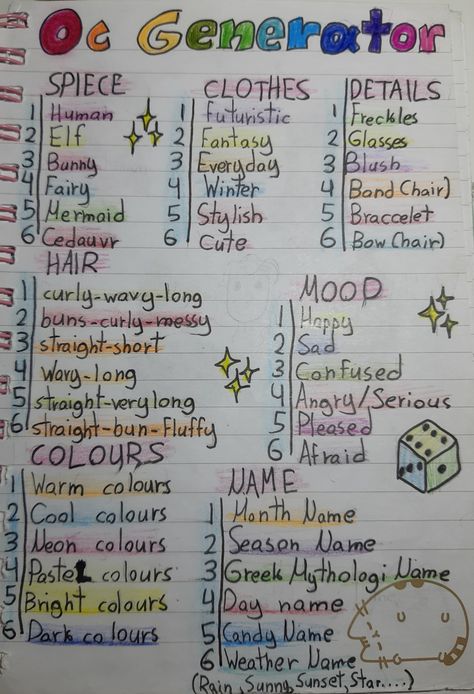 Oc Generator
SPIECE
1 Human
2 Elf
3 Bunny
4 Fairy
5 Mermaid
6 Cedauvr
CLOTHES
1 Futuristic
2 Fantasy
3 Everyday
4 Winter
5 Stylish
6 Cute
DETAILS
1 Freckles
2 Glasses
3 Blush
4 Band (hair)
5 Braccelet
6 Bow (hair)
HAIR
1 curly-wavy-long
2 buns-curly-messy
3 straight-short
4 wavy-long
5 straight-very long
6 straight-bun-fluffy
MOOD
1 Happy
2 Sad
3 Confused
4 Angry/Serious
5 Pleased
6 Afraid
COLOURS
1 Warm colours
2 Cool colours
3 Neon colours
4 Pastel colours
5 Bright colours
6 Dark colours
NAME
1 Month Name
2 Season Name
3 Greek Mythologi Name
4 Day name
5 Candy Name
6 Weather Name
(Rain, Sunna, Sunset, Star....)